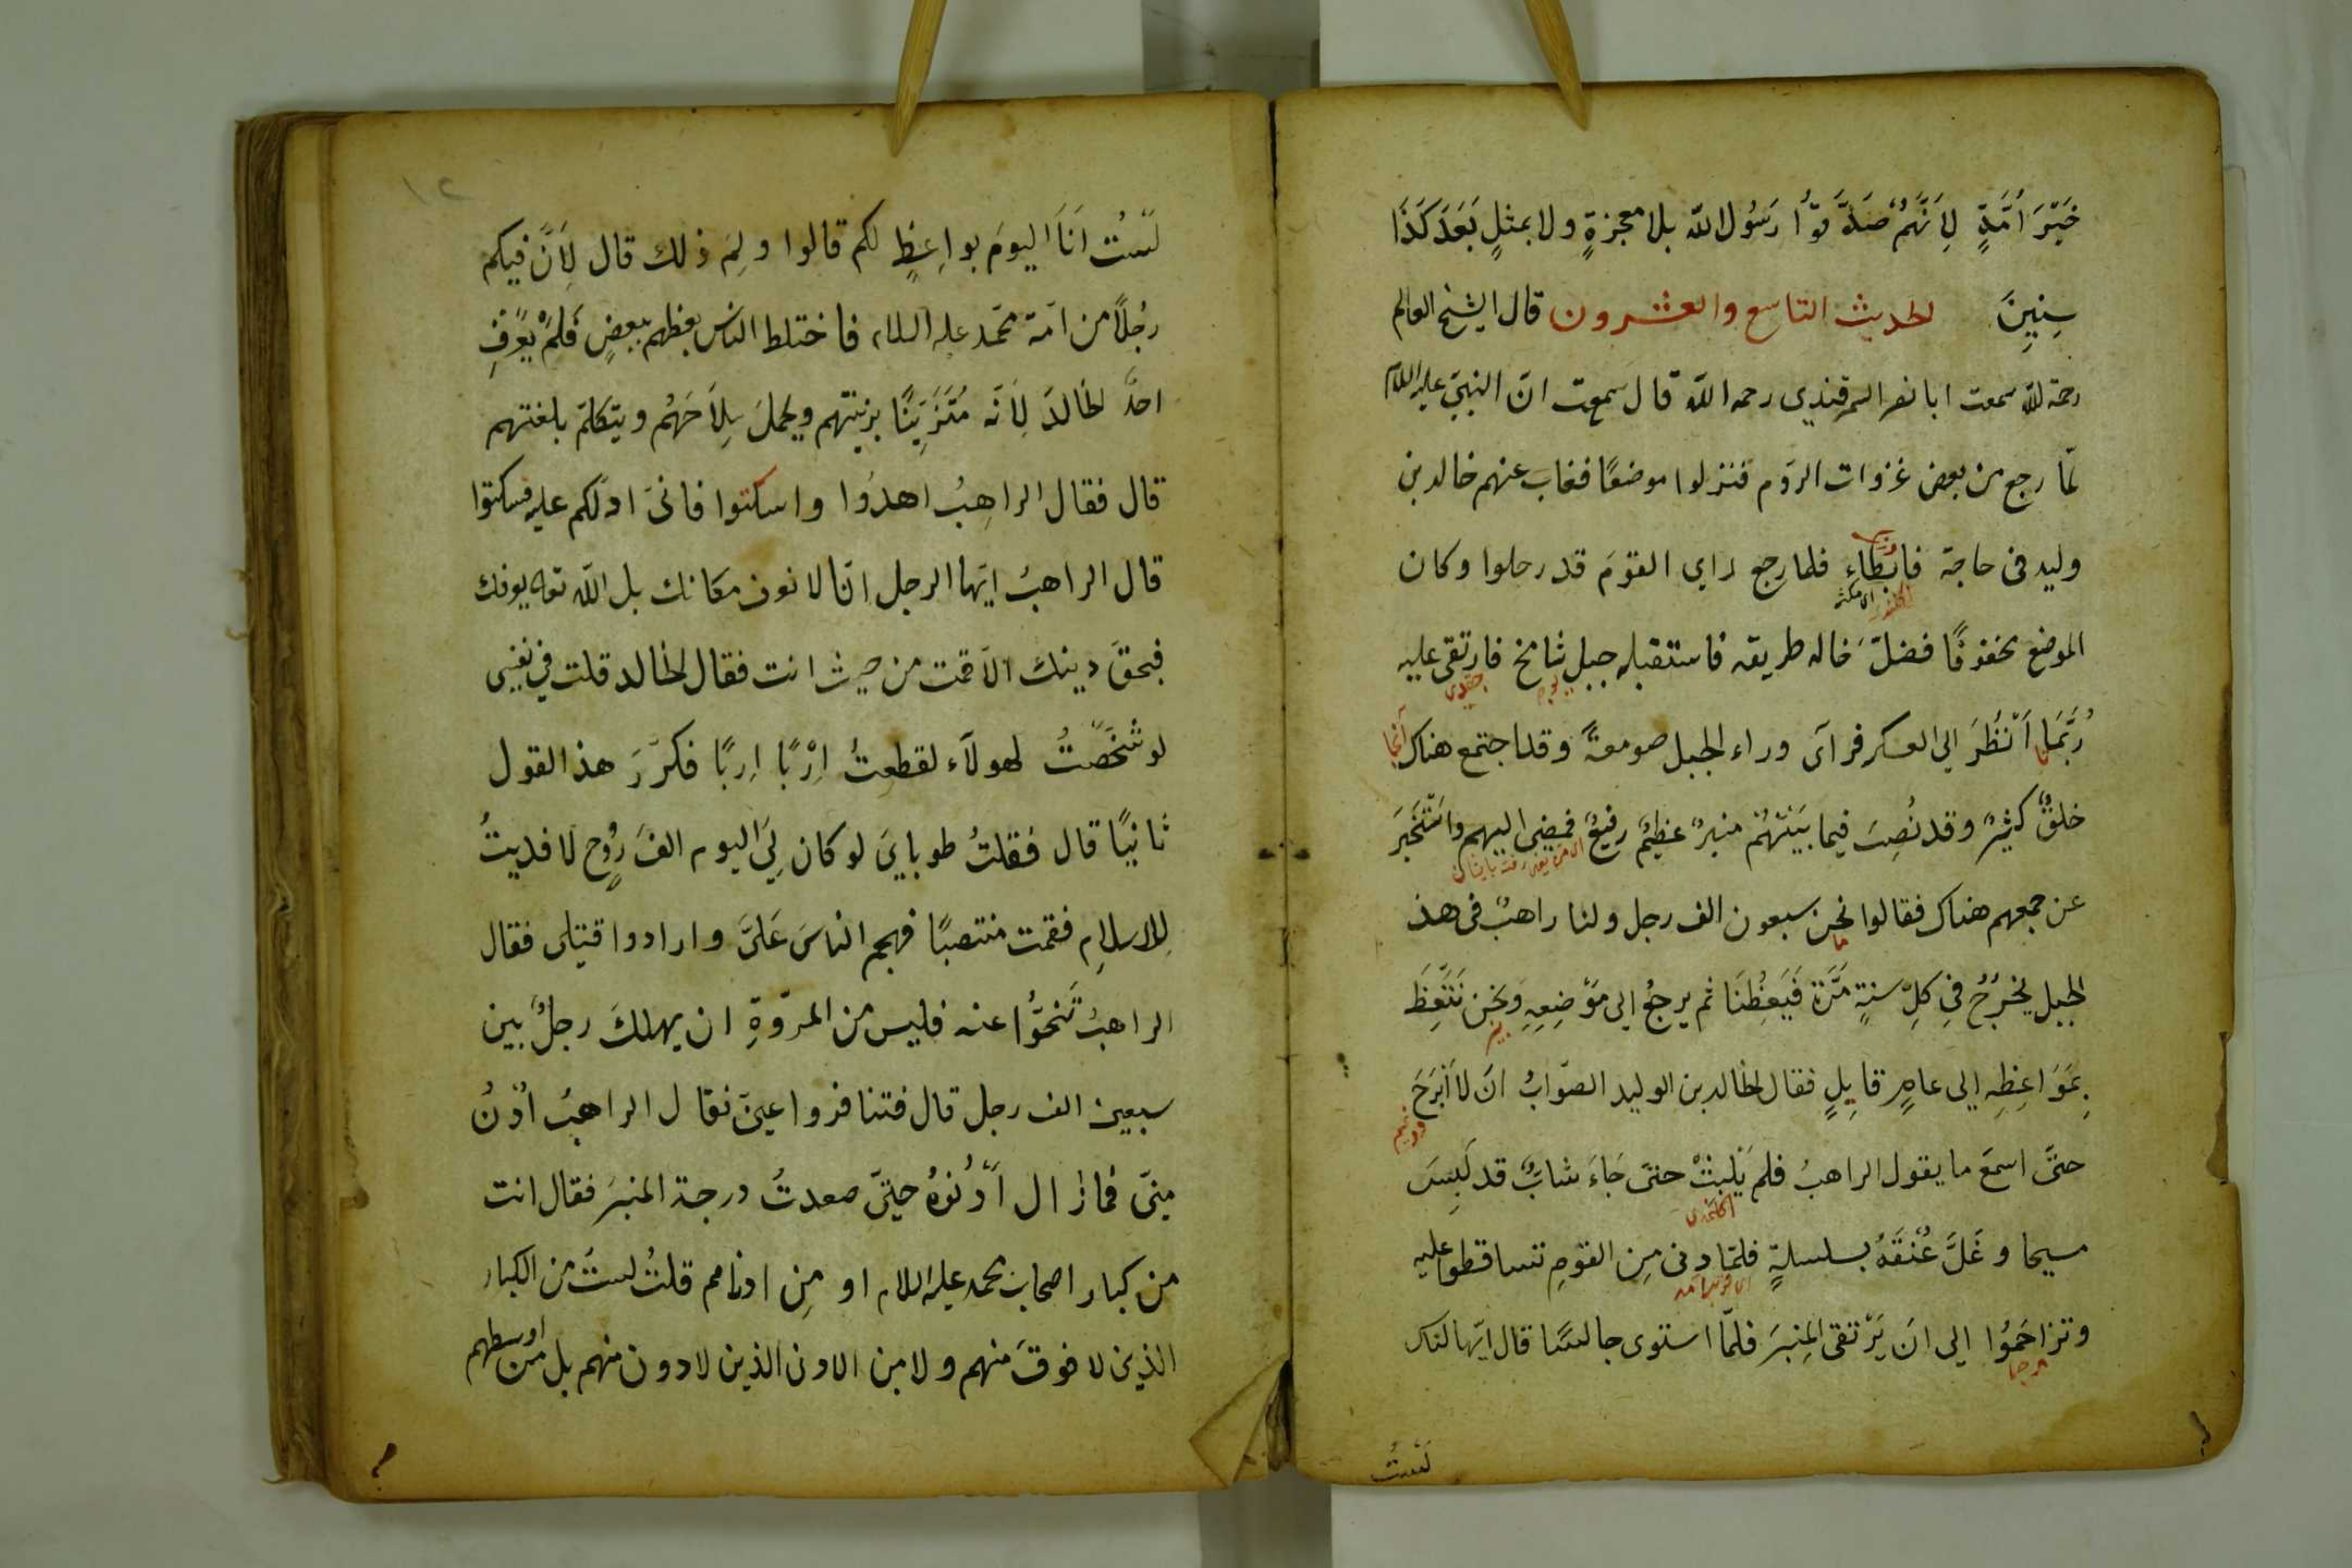 خَيْرَ اُمَّةٍ لِاَنَّهُمْ صَدَّقُوْا رَسُول اللّه بلا معجزةٍ ولا بمثلٍ بَعْدَ كَذَا
سِنِينَ الحديث التاسع والعشرون قال الشيخ العالم
رحمة للّه سمعت ابا نصر السمرقندي رحمه اللّه قال سمعت انّ النبيّ عليه السلام
لمّا رجع من بعض غزوات الروم فنزلوا موضعًا فغاب عنهم خالد بن
وليد فى حاجة فابطاء فلما رجع راى القومَ قد رحلوا وكان
الموضع مخفوفًا فضلّ خاله طريقه فاستقبله جبل شامخ فارتقى عليه
رُبَّمَا اَنْظُرَ الى العسكر فرآى وراء الجبل صومعةً وقد اجتمع هناك
خلقٌ كثيرٌ وقد نُصِبَ فيما بَيْنَهُمْ منبرٌ عظيمٌ رفيعٌ فمضى اليهم واسْتَخْبَرَ
عن جمعهم هناك فقالوا نحن سبعون الف رجل ولنا راهبٌ فى هذ
الجبل يخرُجُ فِى كلّ سنةٍ مَرَّة فَيَعِظُنَا ثم يرجعُ الى مَوْضِعِهِ ونحن نَتَّعِظُ
بِمَوَاعِظِهِ الى عامٍ قابِلٍ فقال لخالد بن الوليد الصّوابُ انْ لا اَبْرَحَ
حتّى اسمعَ ما يقول الراهبُ فلم يَلْبِثْ حتى جَاءَ شابٌّ قد لَبِسَ
مسيحا وغَلَّ عُنُقَهُ بسلسلةٍ فلمّا دنى مِن القومِ تساقطوا عليه
وتزاحَمُوْا الى انْ يَرْتقى المِنبرَ فلمّا استوى جالسًا قال ايّها لناس
لَسْتُ
لَسْتُ اَنَا اليومَ بواعِظٍ لكم قالوا ولِمَ ذلك قال لِاَنَّ فيكم
رجُلاً من امّة محمّد عليه السلام فاختلط الناس بعظهم ببعضٍ فَلَمْ يَعْرِفِ
احدٌ لخالدَ لِاَنّه مُتَزَيِّنًا بزينتهم ويحملَ سِلَاحَهُم ويتكلّم بلغتهم
قال فقال الراهِبُ اهدؤا واسكتوا فانىّ ادلّكم عليه فسكتوا
قال الراهبُ ايّها الرجل انّا لا نعرف مكانك بل اللّه تعالى يعرفك
فبحقّ دينك الّا قمت من حيث انت فقال لخالد قلت فى نفسى
لو شخّصتُ لهولآء لقطعتُ اِرْبًا اِربًا فكرّرَ هذ القول
ثانيًا قال فقلتُ طوباىَ لو كان لِىَ اليوم الفَ رُوح لافديتُ
لِلاسلامِ فقمت منتصبًا فهجم الناسَ عَلىَّ وارادوا قتلى فقال
الراهبُ تَنَحَّوْا عنه فليس من المروّةِ ان يهلكَ رجلٌ بين
سبعين الف رجل قال فتنافروا عنىّ فقال الراهبُ اُدْنُ
منىّ فما زال اَدْنُوْهُ حتىّ صعدتُ درجة المنبرَ فقال انت
من كبار اصحاب محمد عليه السلام او مِن ادناهم قلتُ لستُ من الكبار
الذين لا فوقَ منهم ولا من الادنى الذين لا دون منهم بل من اوسطهم